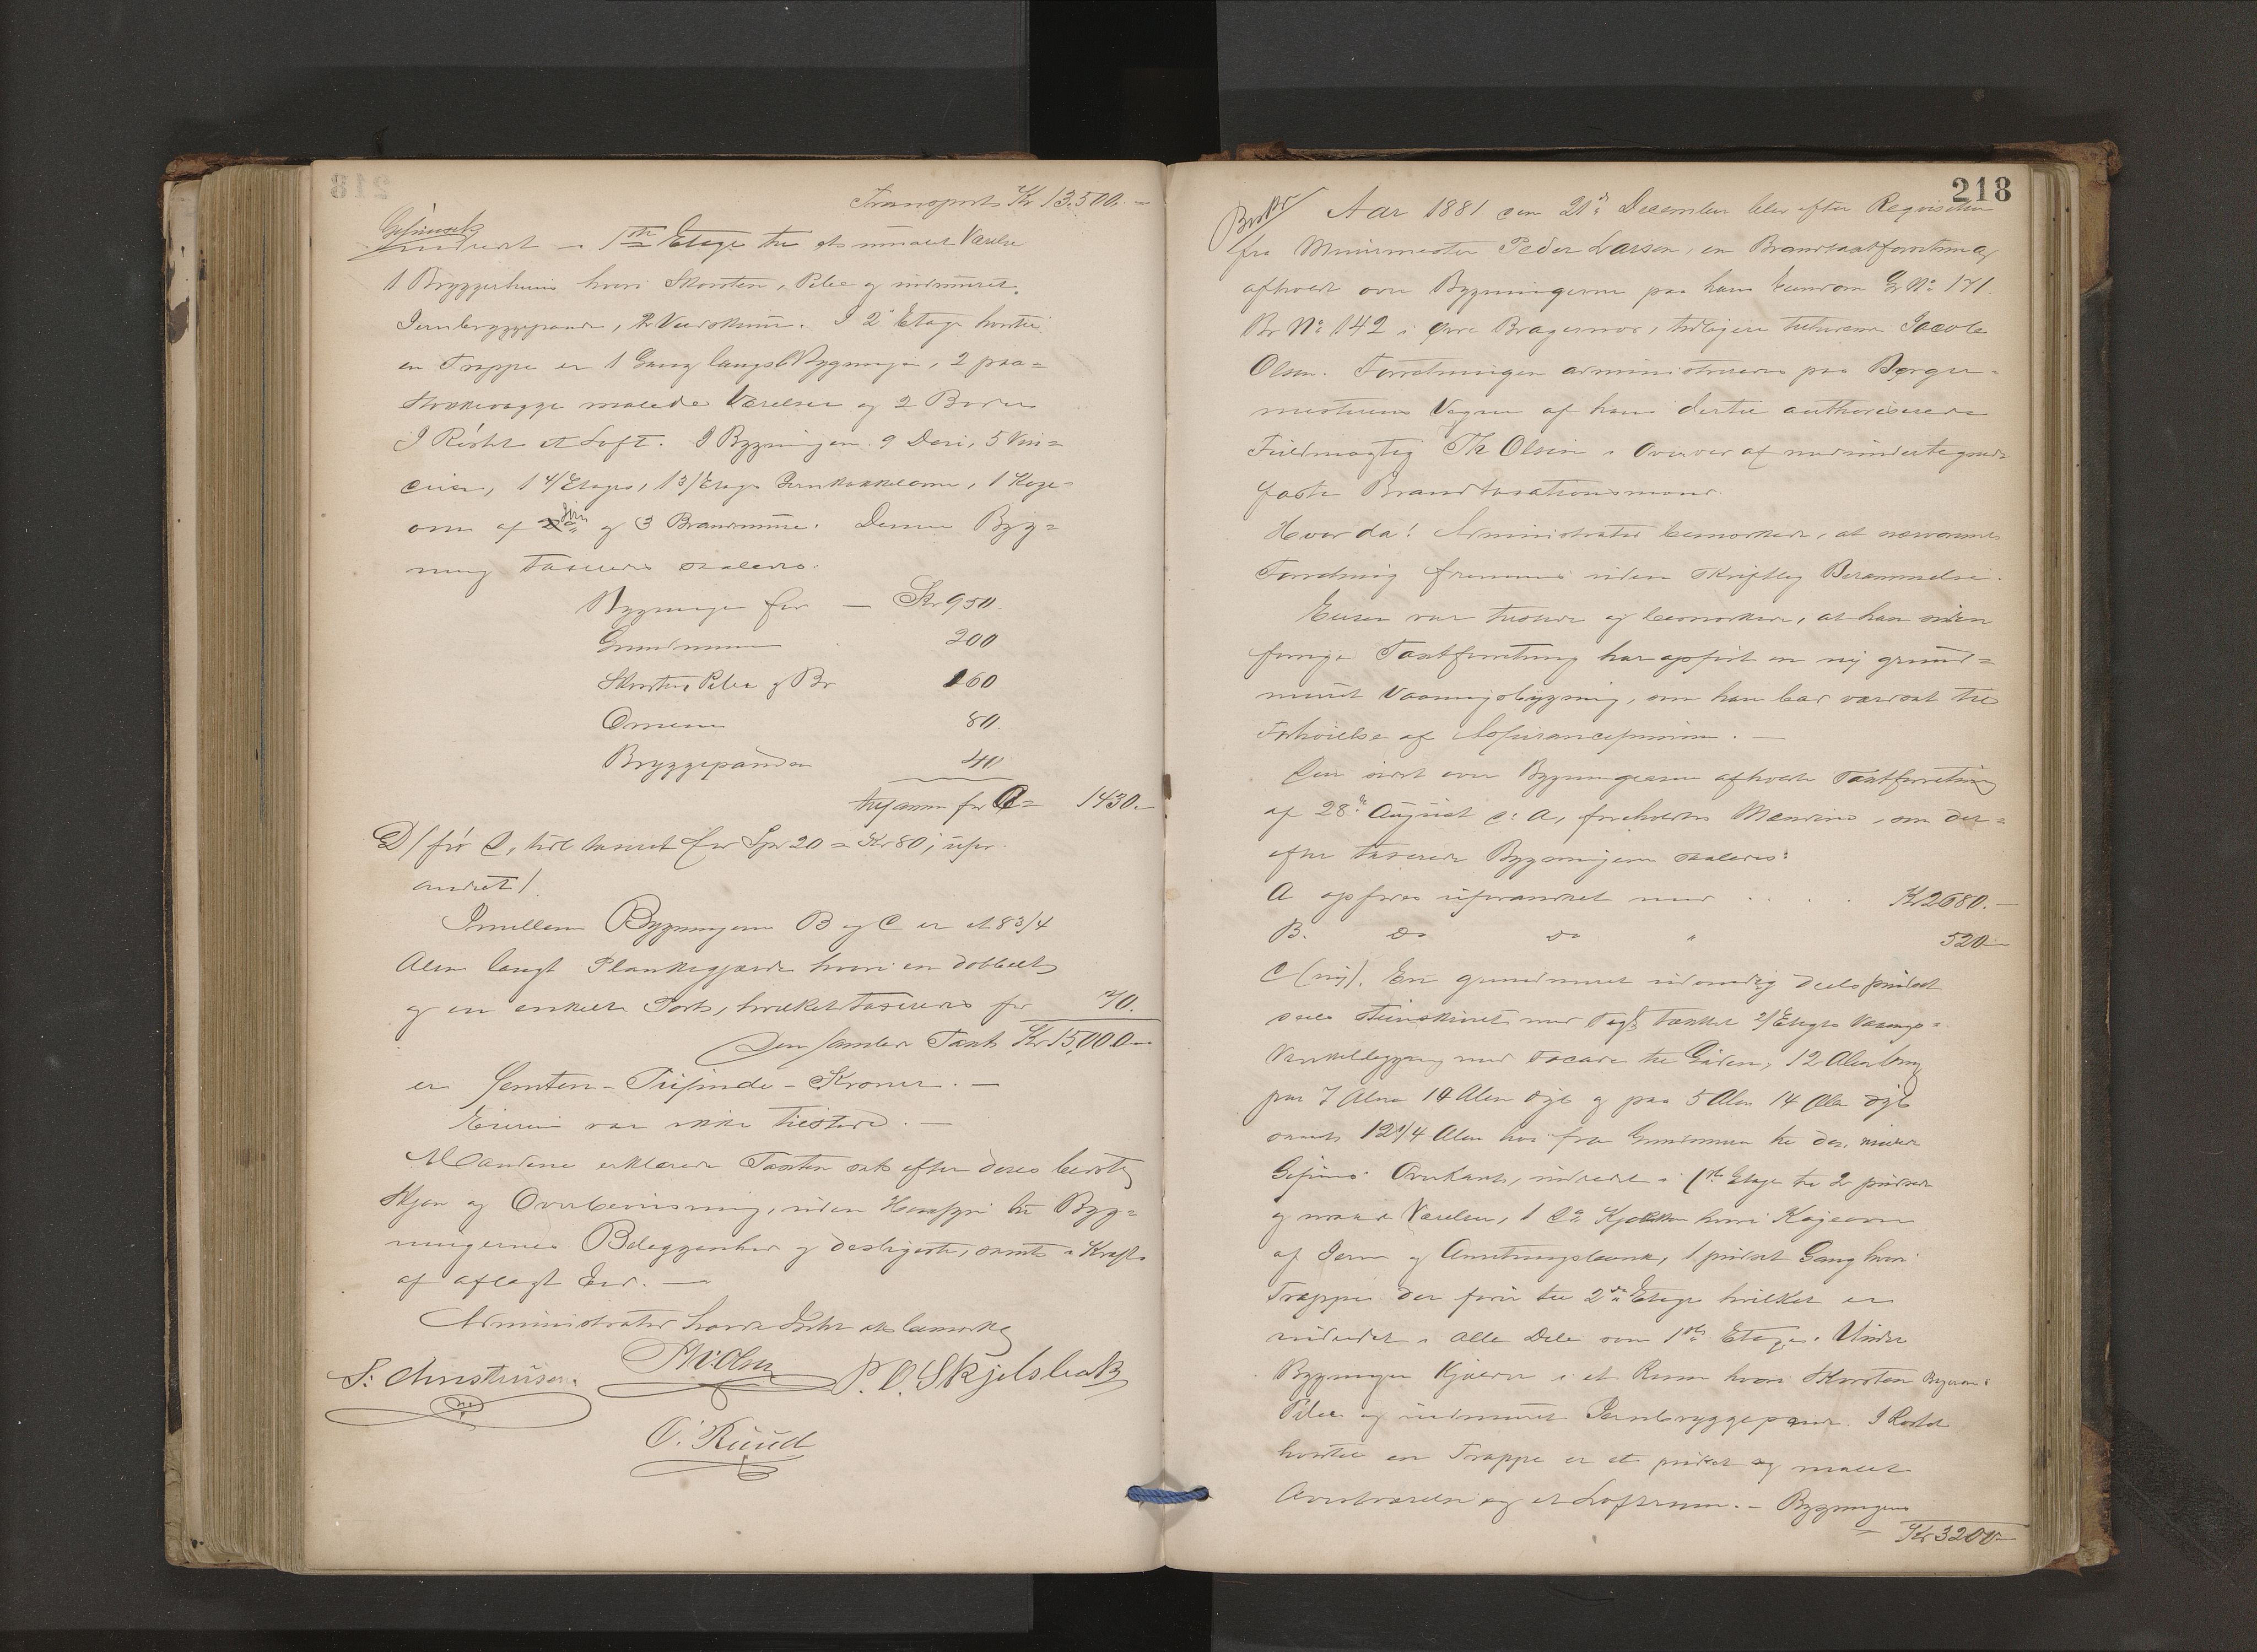 Transport Kr 13.500. —
Gesimsek
indredet i 1ste Etage til et umalet Værelse
1 Bryggerhuus hvori Skorsten, Pibe og indmuret
Jernbryggepande, 2 Vedskuur. I 2' Etage hvortil
en Trappe er 1 Gang langs Bygningen, 2 paa=
strøkevægge malede Værelser og 2 Boder
I Røstet et Loft. I Bygningen 9 Døre, 5 Vin=
duer, 1 4/Etages, 1 3/Etages Jernkakkelovne, 1 Koge=
ovn af Jern og 3 Brandmure. Denne Byg=
ning taxeres saaledes:
Bygningen for — Kr 950.
Grundmuren 200
Skorsten Piber og Br 160
Ovnene 80.
Bryggepanden 40
tilsammen for C = 1430.—
D/ før C, tidl taxeret for Spd 20 = Kr 80, ufor
andret/.
Imellem Bygningerne B og C er et 8 3/4
Alen langt Plankegjærde hvori en dobbelt
og en enkelt Port, hvilket taxeres for 70.
Den samlede Taxt Kr 15,000—
er Femten-Tusinde-Kroner. —
Eieren var ikke tilstede. —
Mændene erklærede Taxten sat efter deres bedste
Skjøn og Overbeviisning, uden Hensyn til Byg=
ningernes Beleggenhed og desligeste, samt i Kraft
af aflagt Eed. —
Administrator havde Intet at bemærke
Th. Olsen
S. Christensen P. O. Skjelsbæk
O. Ruud
218
Aar 1881 den 21de December blev efter Reqvisition
fra Muurmester Peder Larsen, en Brandtaxtforretning
afholdt over Bygningerne paa hans Eiendom Gr No 171.
Br No 142 i øvre Bragernæs, tidligere tilhørende Jacob
Olsen. Forretningen administreredes paa Borger=
mesterens Vegne af hans dertil authoriserede
Fuldmægtig Th Olsen i Overvær af nedenundertegnede
faste Brandtaxationsmænd.
Hvor da! Administrator bemærkede, at nærværende
Forretning fremmes uden skriftlig Berammelse.
Eieren var tilstede og bemærkede, at han siden
forrige Taxtforretning har opført en ny grund=
muret Vaaningsbygning, som han bad værdsat til
Forhøielse af Assurancesummen. —
Den sidst over Bygningerne afholdte Taxtforretning
af 28de August d: A, foreholdtes Mændene, som der=
efter taxerede Bygningerne saaledes:
A opføres uforandret med . . . . Kr 2680.—
B. Do Do " 520—
C (ny). En grundmuret udvendig deels pudset
deels steenskuret med Tagsteen tækket 2/Etages Vaanings=
Vinkelbygning med Facade til Gaden, 12 Alen lang
paa 7 Alen 14 Alen dyb og paa 5 Alen 14 Alen dyb
samt 12 1/4 Alen høi fra Grundmuren til den
Gesims Overkant, indredet i 1ste Etage til 2 pudsede
og malede Værelser, 1 do Kjøkken hvori Kogeovn
af Jern og Anretningsbænk, 1 pudset Gang hvori
Trappe der fører til 2den Etage hvilket er
indredet i alle Dele som 1ste Etage. Under
Bygningen Kjælder i et Rum hvori Skorsten
Piber og indmuret Jernbryggepande. I Røstet
hvortil en Trappe er et pudset og malet
Qvistværelse og et Loftsrum. — Bygningens
Kr 3200—